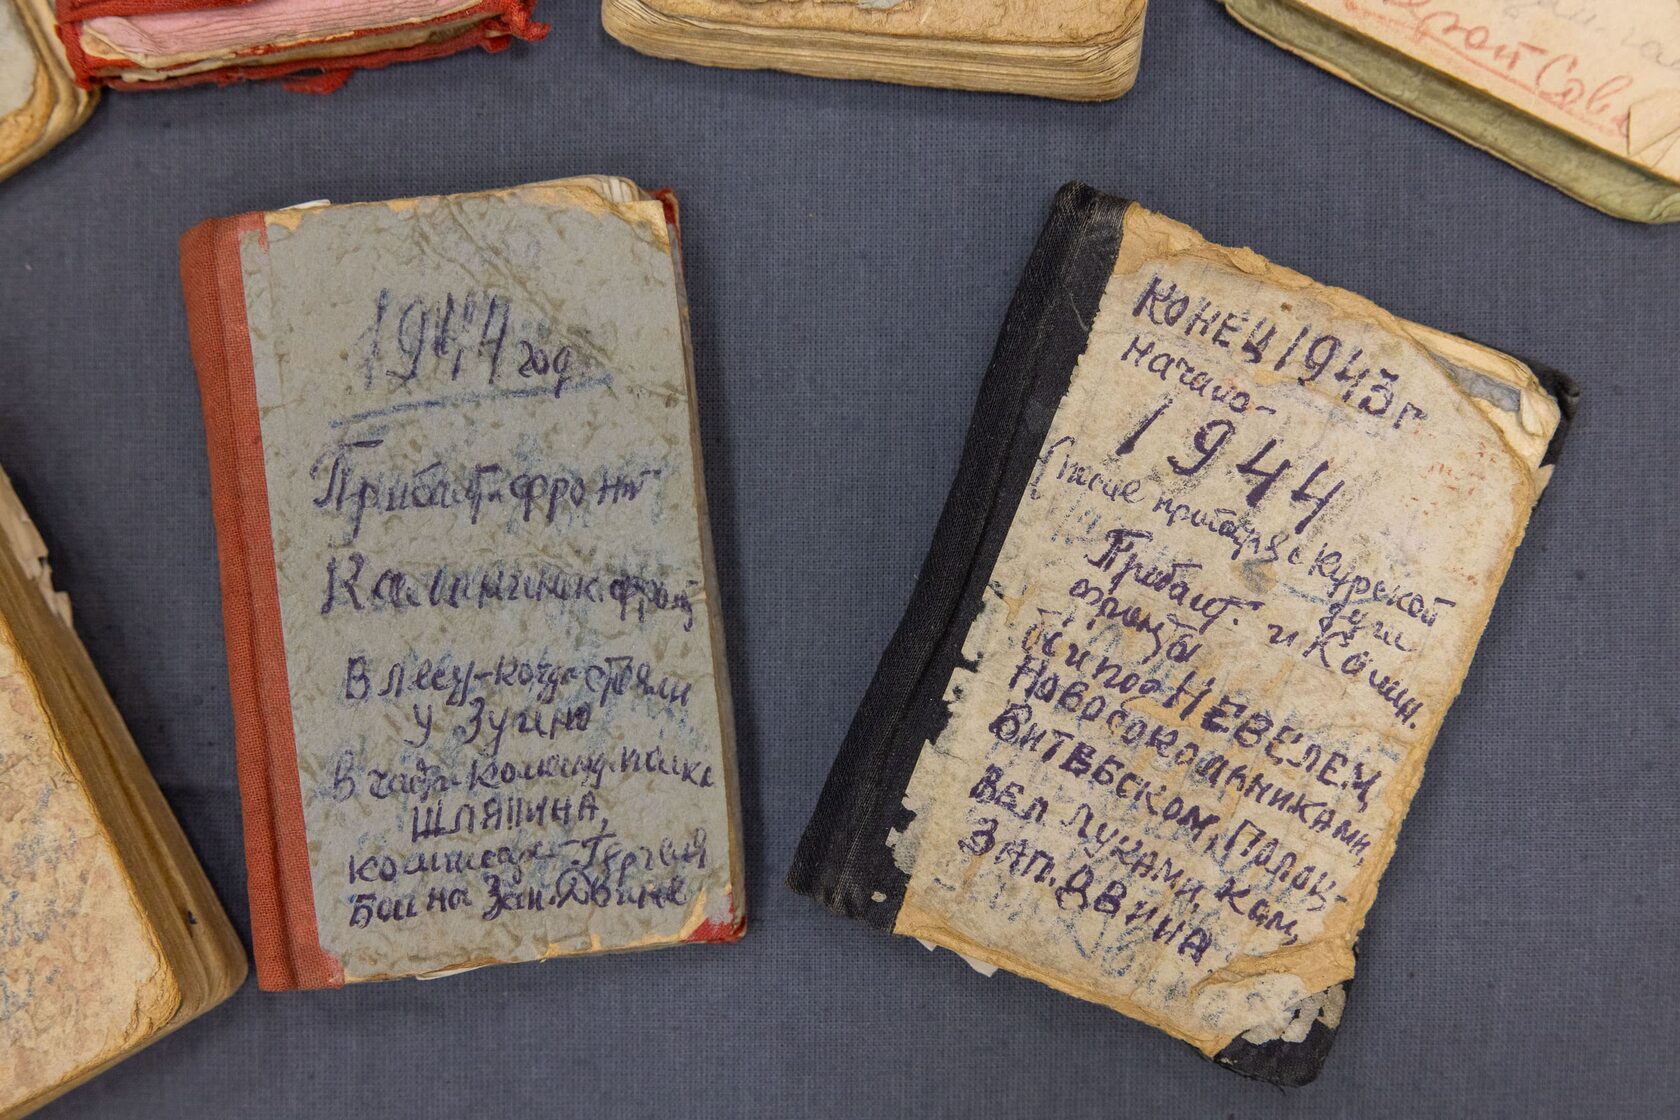 Герой Сов
1944 год
Прибалт. фронт
Калининск. фронт
В лесу - когда стояли
у Зугино
В части команд. полка
ШЛЯПИНА,
комиссар Сергея
Бои на Зап. Двине
КОНЕЦ 1943 г
начало-
1944
(после с Курской
дуги
Прибалт. и Калин.
фронты
бои под НЕВЕЛЕМ,
НОВОСОКОЛЬНИКАМИ,
ВИТЕБСКОМ, ПОЛОЦ-
ВЕЛ ЛУКАМИ, КОМ,
ЗАП. ДВИНА.